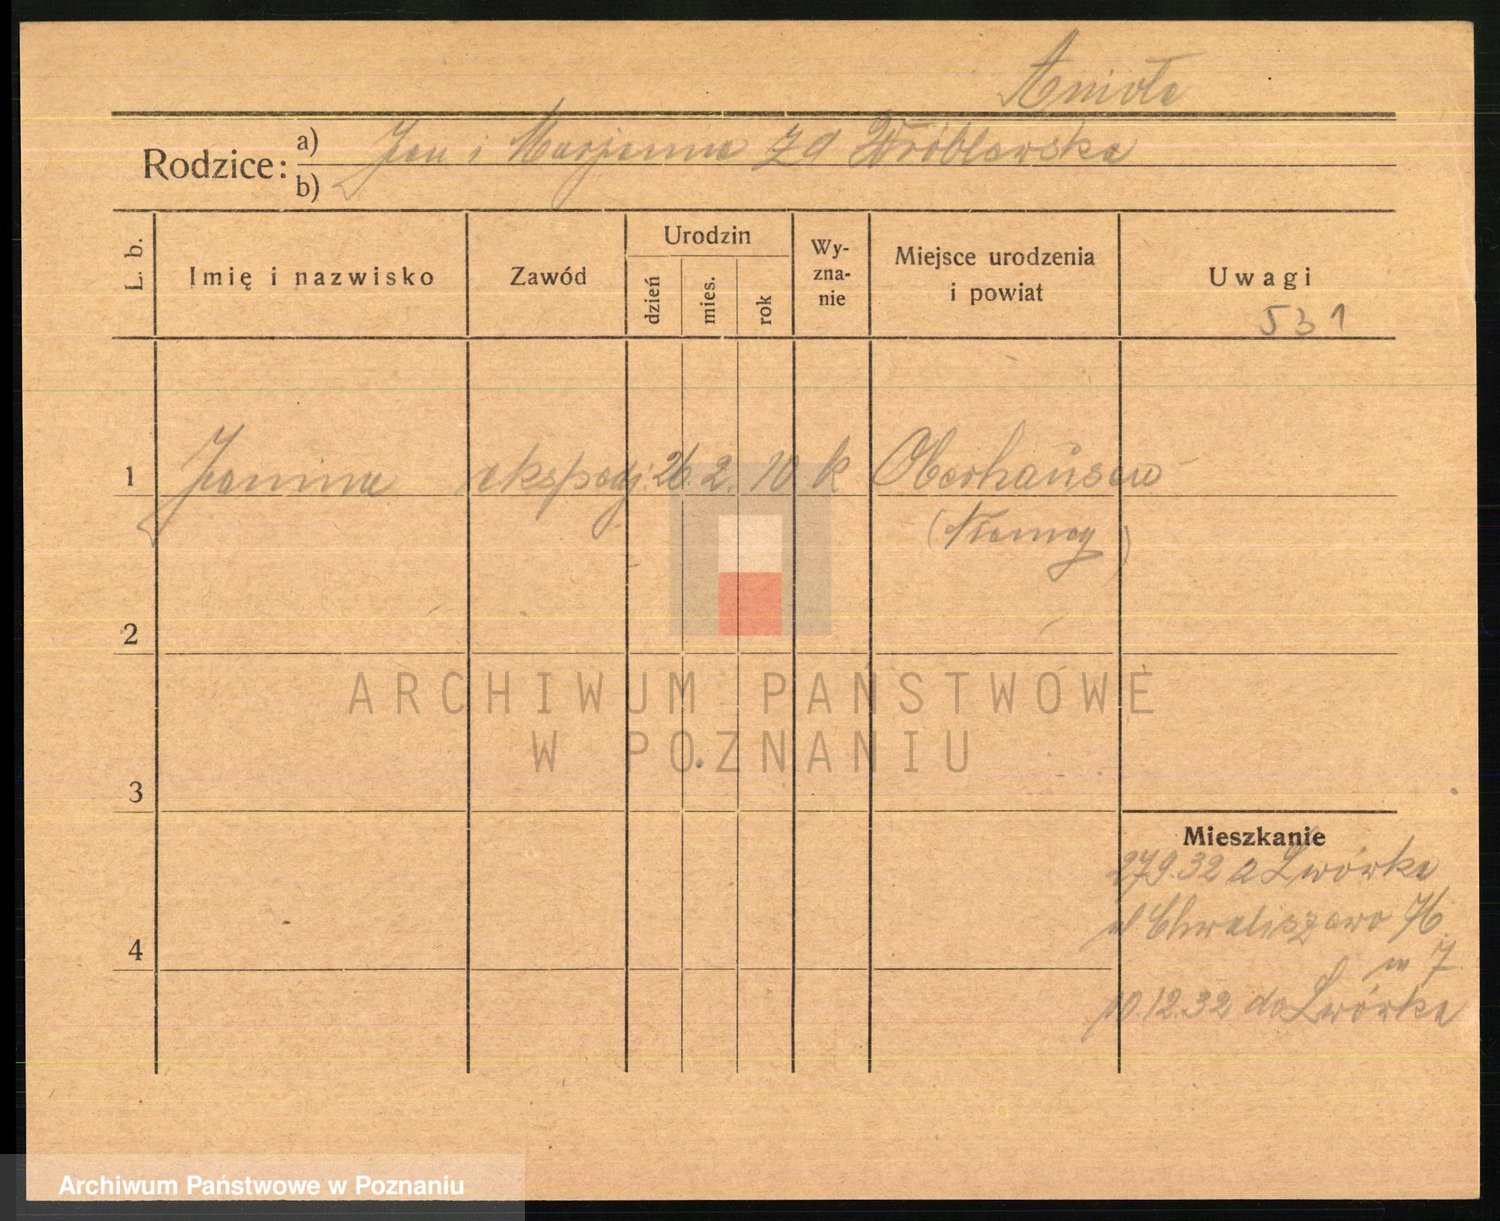 Anioła
Rodzice: a) Jan i Marjanna zd Wróblewska
b)
L. b.
Imię i nazwisko
Zawód
Urodzin
dzień
mies.
rok
Wy-
zna-
nie
Miejsce urodzenia
i powiat
Uwagi
531
1 Janina ekspedj. 26. 2. 10 k Oberhausen
(Niemcy)
2
3
4
Mieszkanie
27.9.32 z Lwówka
ul Chwaliszewo 76
m 7
10.12.32 do Lwówka
ARCHIWUM PAŃSTWOWE
W POZNANIU
Archiwum Państwowe w Poznaniu